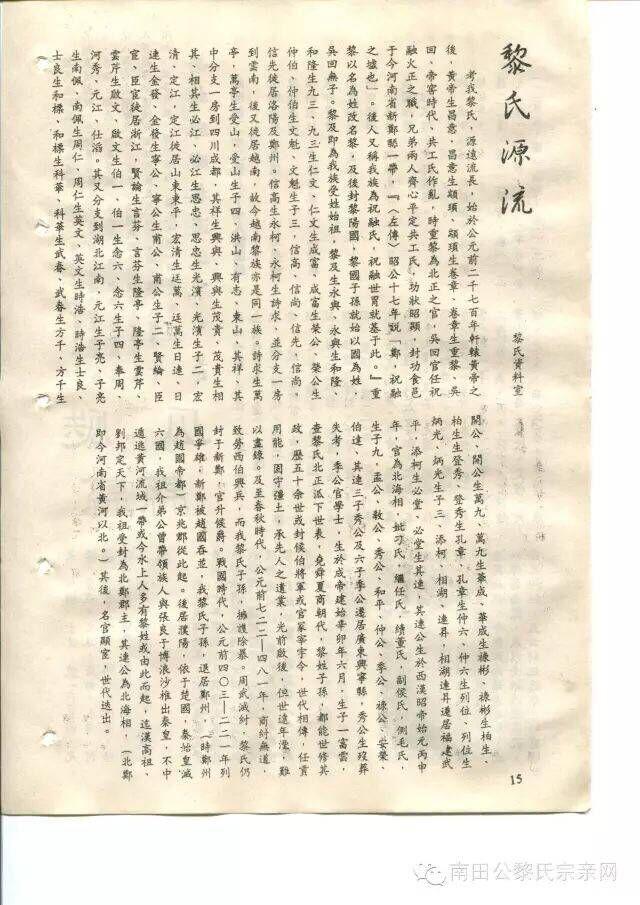 黎氏源流
黎氏資料室
考我黎氏，源遠流長，始於公元前二千七百年軒轅黃帝之
後，黃帝生昌意，昌意生顓頊、顓頊生卷章，卷章生重黎、吳
回、帝嚳時代、共工氏作亂，時重黎為北正之官，吳回官任祝
融火正之職，兄弟兩人齊心平定共工氏，功狀昭顯，封功食邑
于今河南省新鄭縣一帶，『《左傳》昭公十七年説「鄭，祝融
之墟也」。後人又稱我族為祝融氏，祝融世胄就基于此。』重
黎以名為姓改名黎，及後封黎陽國，黎國子孫就始以國為姓，
吳回無子。黎及即為我族受姓始祖，黎及生永興、永興生和隆、
和隆生九三、九三生仁文、仁文生咸富，咸富生榮公、榮公生
仲伯、仲伯生文魁、文魁生子三，信高、信尚、信先，信尚、
信先徒居洛陽及鄭州。信高生永柯、永柯生詩求，並分支一房
到雲南，後又徒居越南，故今越南黎族亦是同一族。詩求生萬
亭，萬亭生受山，受山生子四，洪山、有志、東山、其祥、其
中分支一房到四川成都，其祥生興興、興興生茂貴、茂貴生相
其、相其生必江、必江生思忠、思忠生光濱、光濱生子二，宏
清、定江，定江徒居山東東平，宏清生廷萬、廷萬生日連、日
連生金發、金發生寧公、寧公生甫公、甫公生子二、賢綸、臣
宦、臣宦徒居浙江，賢綸生言芬、言芬生隆亭、隆亭生雲芹、
雲芹生啟文、啟文生伯一、伯一生念六、念六生子四、奉周、
河秀、元江、仕滔。其又分支到湖北江南，元江生子亮、子亮
生南佩、南佩生周仁、周仁生英文、英文生時浩、時浩生士良、
士良生和樑、和樑生科華、科華生武春、武春生方千、方千生
開公、開公生萬九、萬九生華成、華成生祿彬、祿彬生柏生、
柏生生登秀、登秀生孔章、孔章生仲六、仲六生列位、列位生
炳光、炳光生子三、添柯、相湖、連昇，相湖連昇遷居福建武
平，添柯生必堂、必堂生其連，其連公生於西漢昭帝始元丙申
年，官為北海相，妣刁氏，繼任氏、績董氏，副侯氏，側毛氏，
生子九，孟公、敦公、秀公、和平、仲公、季公、祿公、安榮、
伯達、其連三子秀公及六子季公遷居廣東興寧縣，秀公生歿葬
失考，季公官學士，生於成帝建始辛卯年六月，生子一富雲，
查黎氏北正派下世表，堯舜夏商朝代，黎姓子孫，都能世修其
政，歷五十餘世或封侯伯將軍或官冢宰守令，世代相傳，任賢
用能，固守彊土，承先人之遺業，光前啟後，但世遠年湮，難
以盡錄。及至春秋時代，公元前七二二—四八一年，商紂無道，
致勞西伯興兵，而我黎氏子孫，擁護除暴。周武滅紂，黎氏仍
封于新鄭，官升侯爵。戰國時代，公元前四〇三—二二一年列
國爭雄，新鄭被趙國吞並，我黎氏子孫，退居鄭州，（時鄭州
為趙國帝都）京兆郡從此起。後居濮陽，依于楚國，秦始皇滅
六國，我祖介弟公曾帶領族人與張良于博浪沙椎出秦皇，不中
遁逃黃河流域一帶或今水上人多有黎姓或由此而起，迄漢高祖、
劉邦定天下，我祖受封為北鄭郡主，其連公為北海相，（北鄭
即今河南省黃河以北。）其後，名官顯宦，世代迭出。
15
南田公黎氏宗亲网